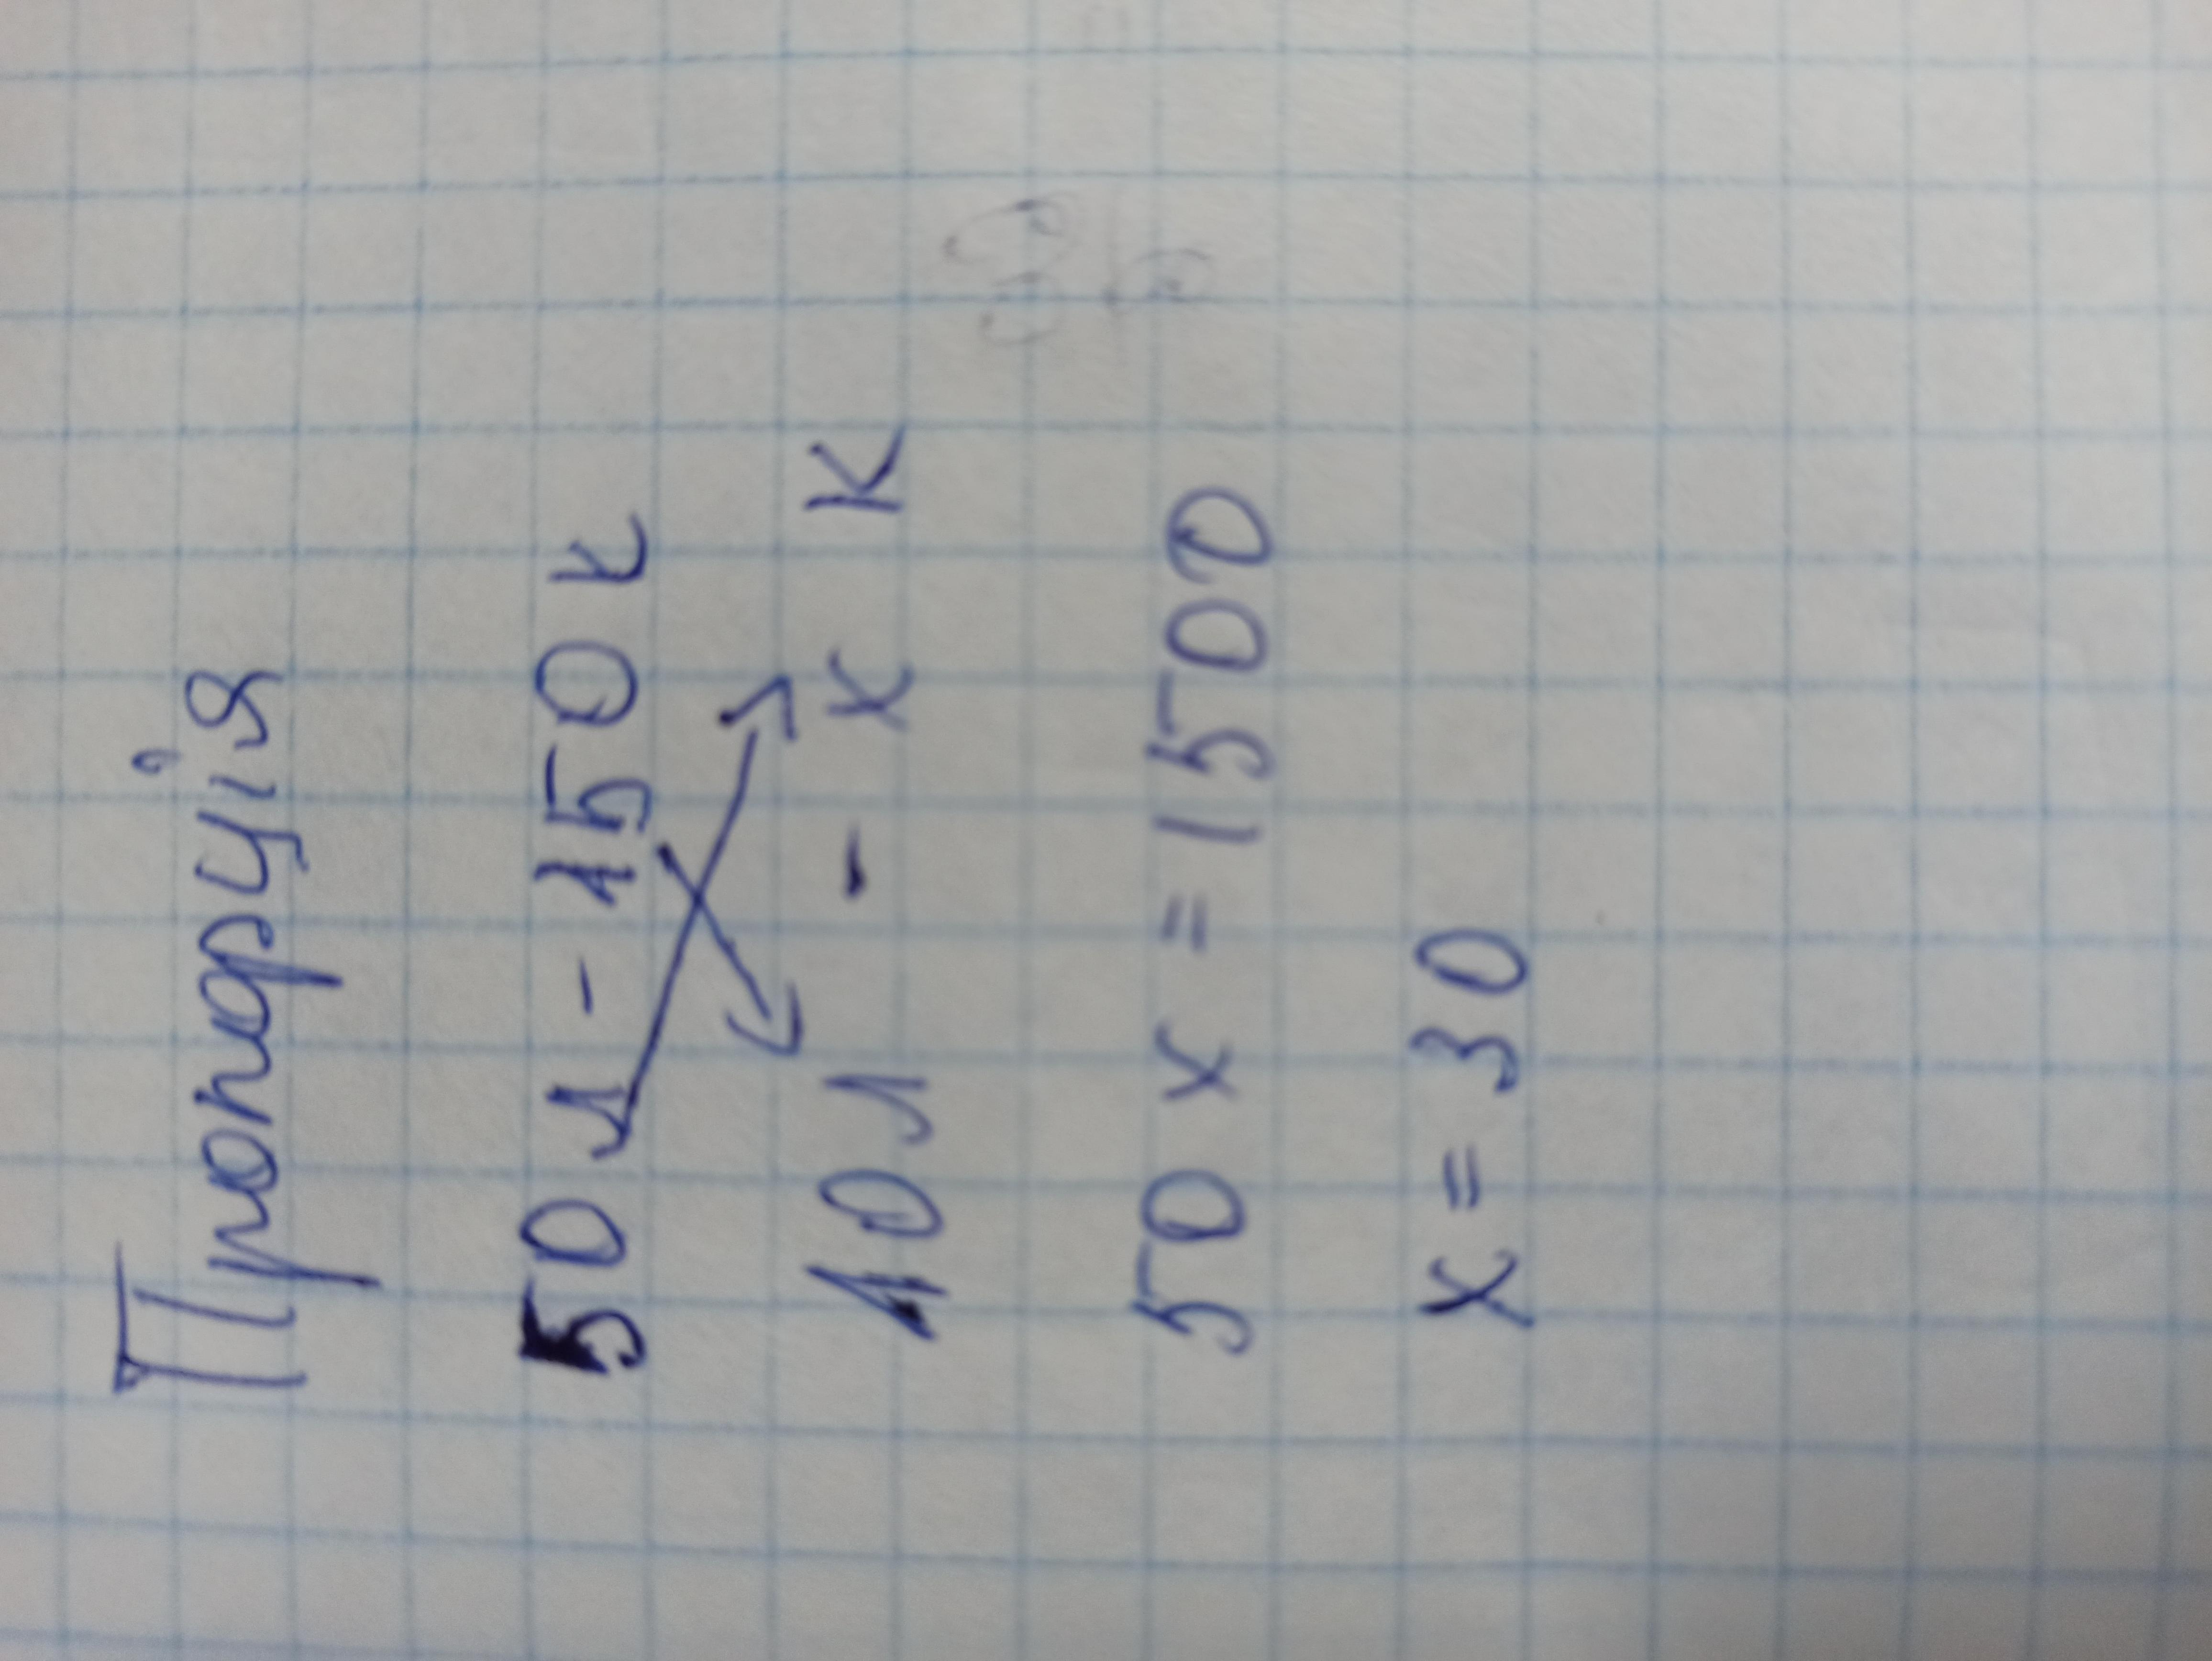 Пропорція
50 л - 150 к
10 л - х к
50 х = 1500
х = 30